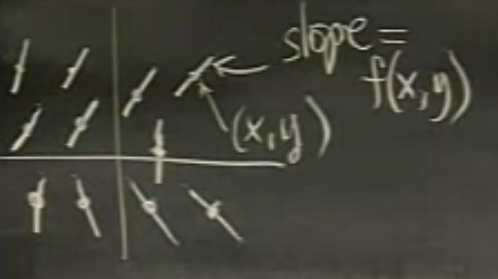 slope =
f(x,y)
(x,y)